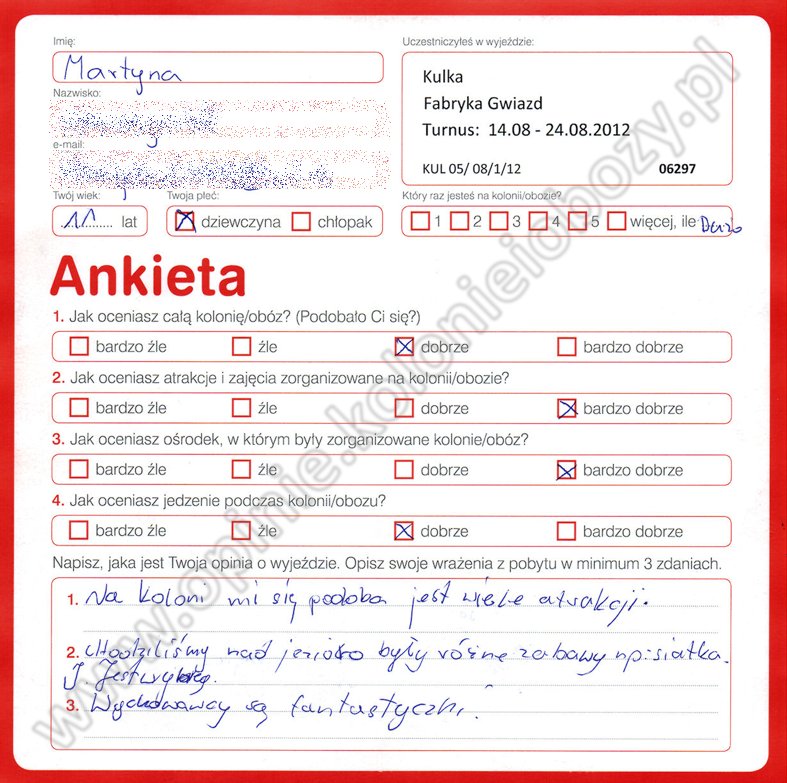 Imię:
Martyna
Nazwisko:
e-mail:
Twój wiek:
11 lat
Twoja płeć:
dziewczyna chłopak
Uczestniczyłeś w wyjeździe:
Kulka
Fabryka Gwiazd
Turnus: 14.08 - 24.08.2012
KUL 05/ 08/1/12 06297
Który raz jesteś na kolonii/obozie?
1 2 3 4 5 więcej, ile Dużo
Ankieta
1. Jak oceniasz całą kolonię/obóz? (Podobało Ci się?)
bardzo źle źle dobrze bardzo dobrze
2. Jak oceniasz atrakcje i zajęcia zorganizowane na kolonii/obozie?
bardzo źle źle dobrze bardzo dobrze
3. Jak oceniasz ośrodek, w którym były zorganizowane kolonie/obóz?
bardzo źle źle dobrze bardzo dobrze
4. Jak oceniasz jedzenie podczas kolonii/obozu?
bardzo źle źle dobrze bardzo dobrze
Napisz, jaka jest Twoja opinia o wyjeździe. Opisz swoje wrażenia z pobytu w minimum 3 zdaniach.
1. Na koloni mi się podoba jest wiele atrakcji.
2. Chodziliśmy nad jezioro były różne zabawy np: siatka.
J. Jest
3. Wychowawcy są fantastyczni.
www.opinie.kolonieiobozy.pl